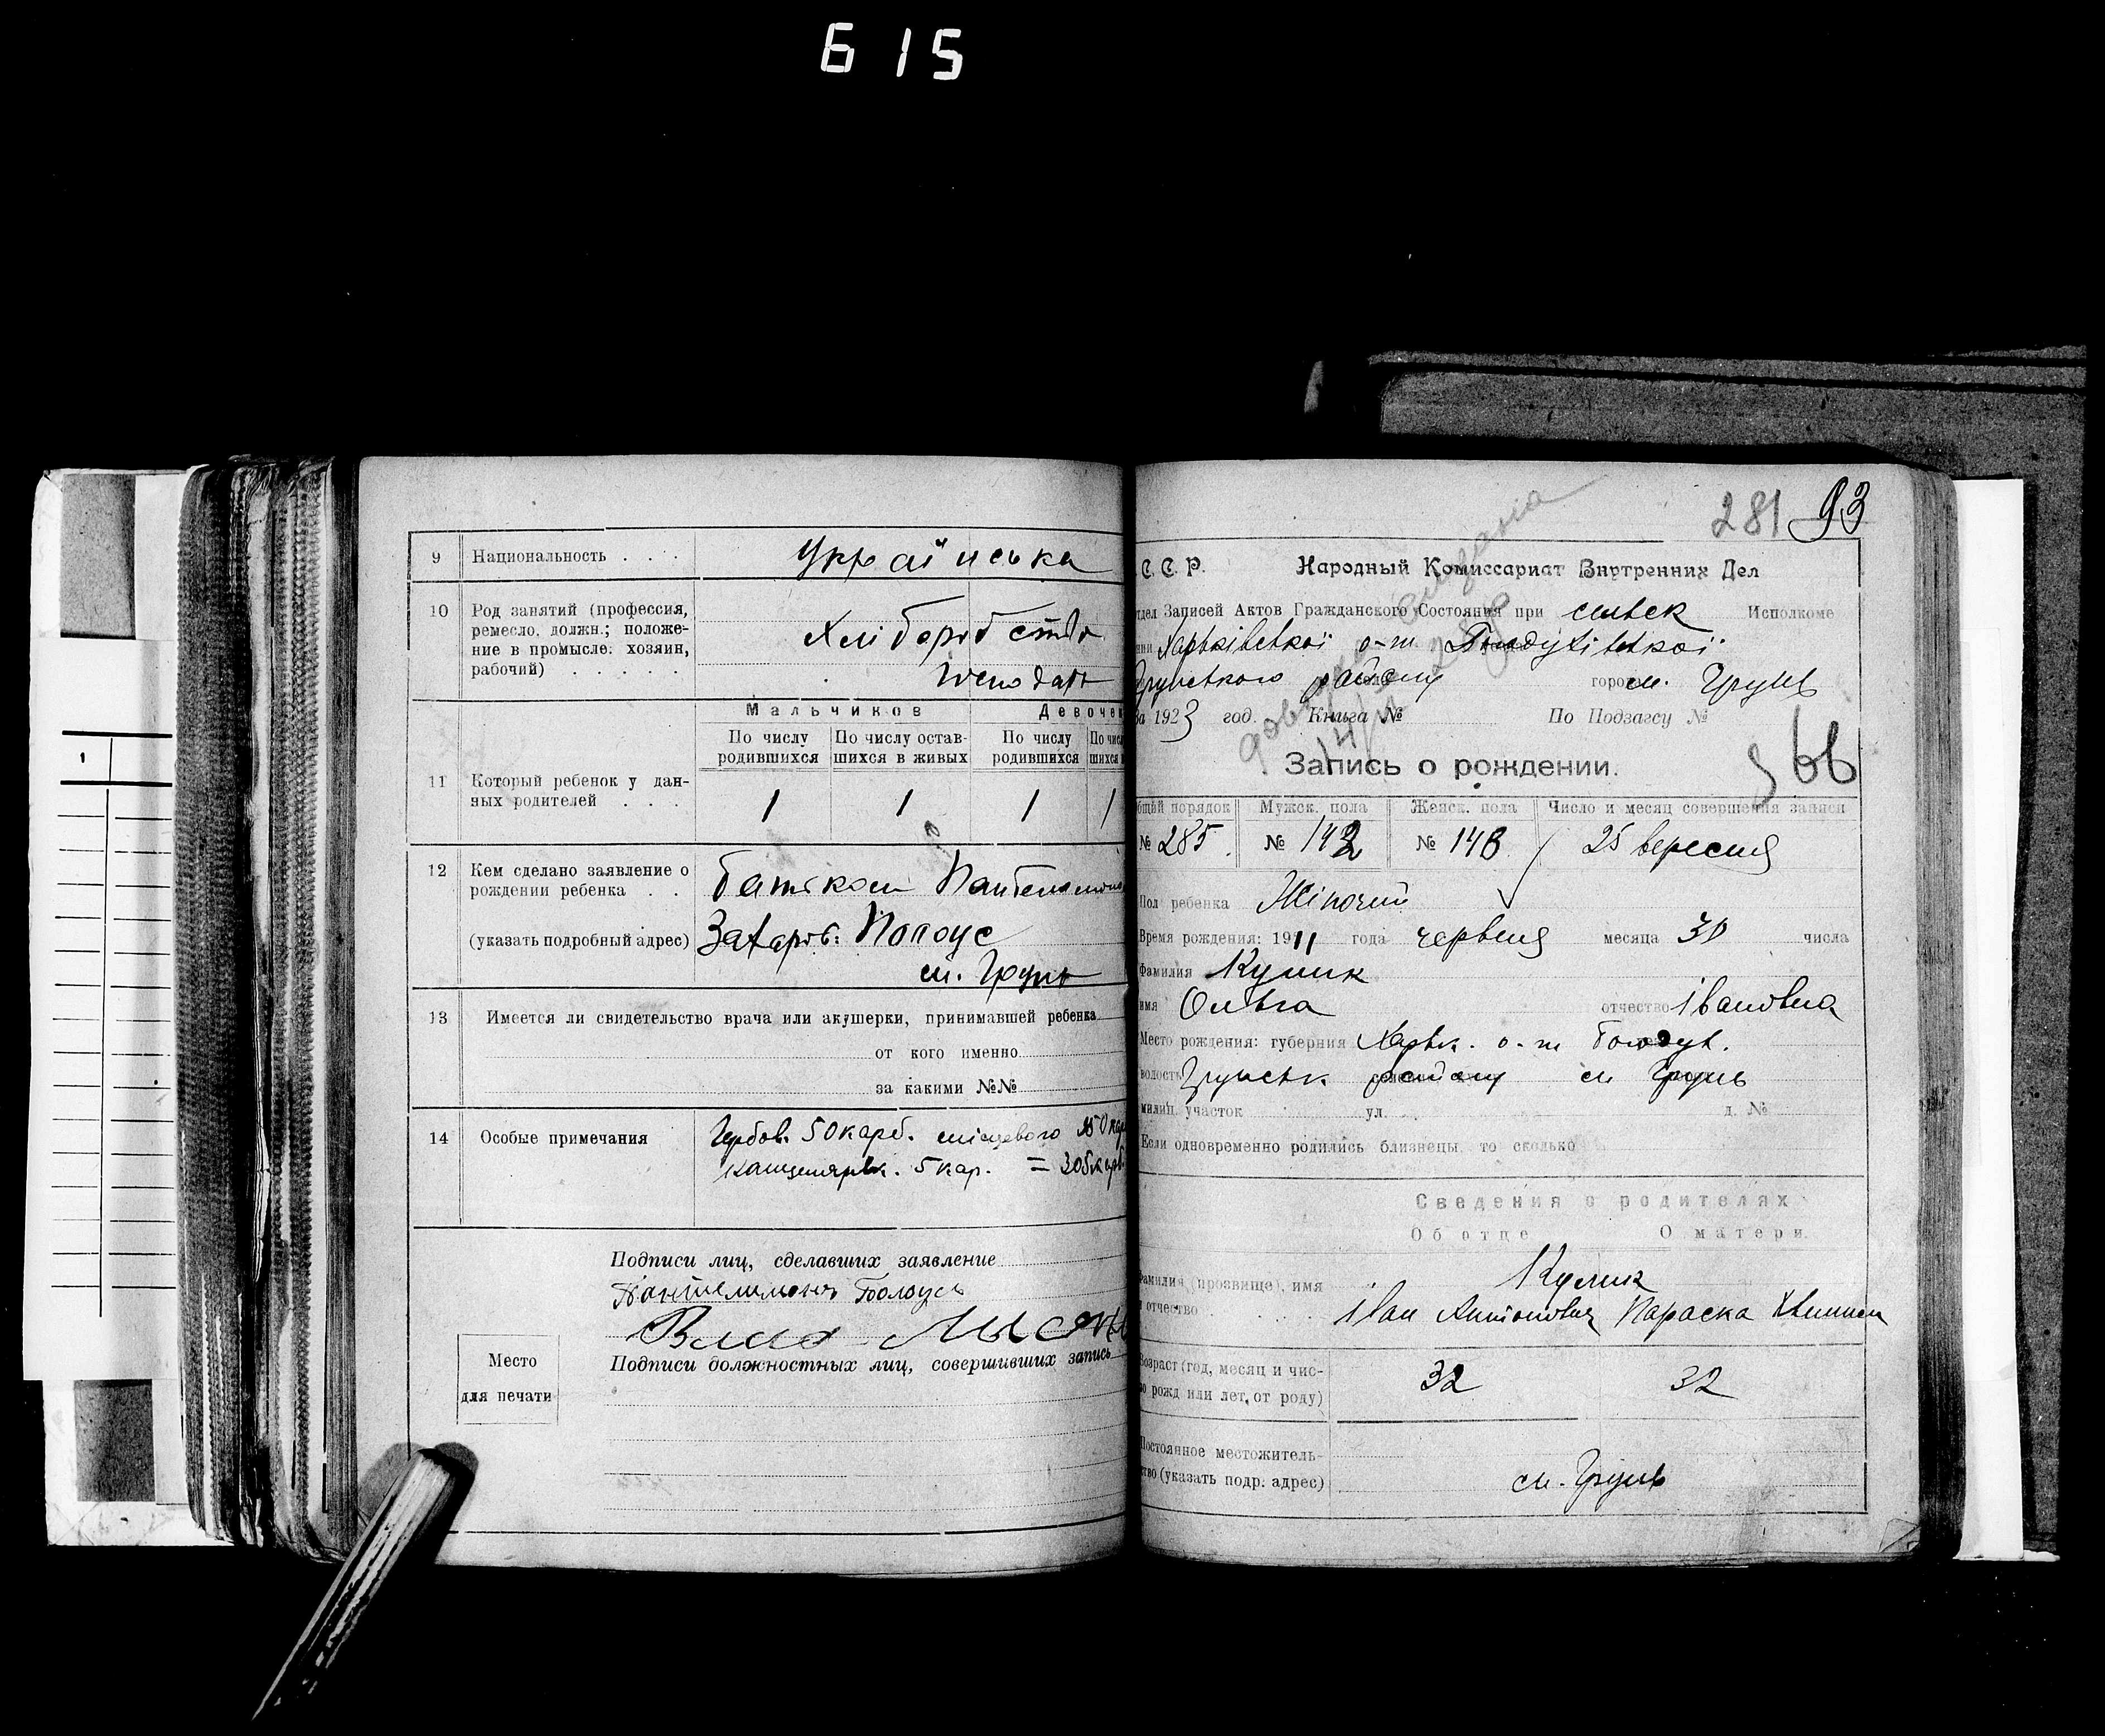 615
9 Национальность . . . Українська
10 Род занятий (профессия,
ремесло, должн.; положе-
ние в промысле: хозяин,
рабочий) . . . . .
Хліборобство
11 Который ребенок у дан-
ных родителей . . .
Мальчиков Девочек
По числу родившихся По числу остав-шихся в живых По числу родившихся По числ шихся
1 1 1 1
12 Кем сделано заявление о
рождении ребенка . .
(указать подробный адрес)
батьком
Захаров: Полоус
м. Грунь
13 Имеется ли свидетельство врача или акушерки, принимавшей ребенка
от кого именно
за какими №№
14 Особые примечания
Гербов. 50 карб. місцевого
Канцелярськ. 5 кар. = 305 карб
Подписи лиц, сделавших заявление
Пантелимонъ Бълоусъ
Подписи должностных лиц, совершивших запись
Место
для печати
281 93
С. С. Р. Народный Комиссариат Внутренних Дел
дел Записей Актов Гражданского Состояния при Исполкоме
Харьківської о-ти
Грунського району город м. Грунь
За 1923 год. Книга № По Подзагсу №
Запись о рождении. 366
общий порядок Мужск. пола Женск. пола Число и месяц совершения записи
№ 285 № 142 № 143 25 вересня
Пол ребенка Жіночий
Время рождения: 1911 года червня месяца 30 числа
Фамилия Кулик
имя Ольга отчество Івановна
Место рождения: губерния Харьк. о-ти Богодух.
волость Грунськ району м Грунь
милиц. участок ул. д. №
Если одновременно родились близнецы, то сколько
Сведения о родителях
Об отце О матери
Фамилия (прозвище), имя
и отчество . . . .
Кулик
Іван Антонович Параска
Возраст (год, месяц и чис-
ло рожд или лет, от роду)
32 32
Постоянное местожитель-
ство (указать подр. адрес)
м. Грунь